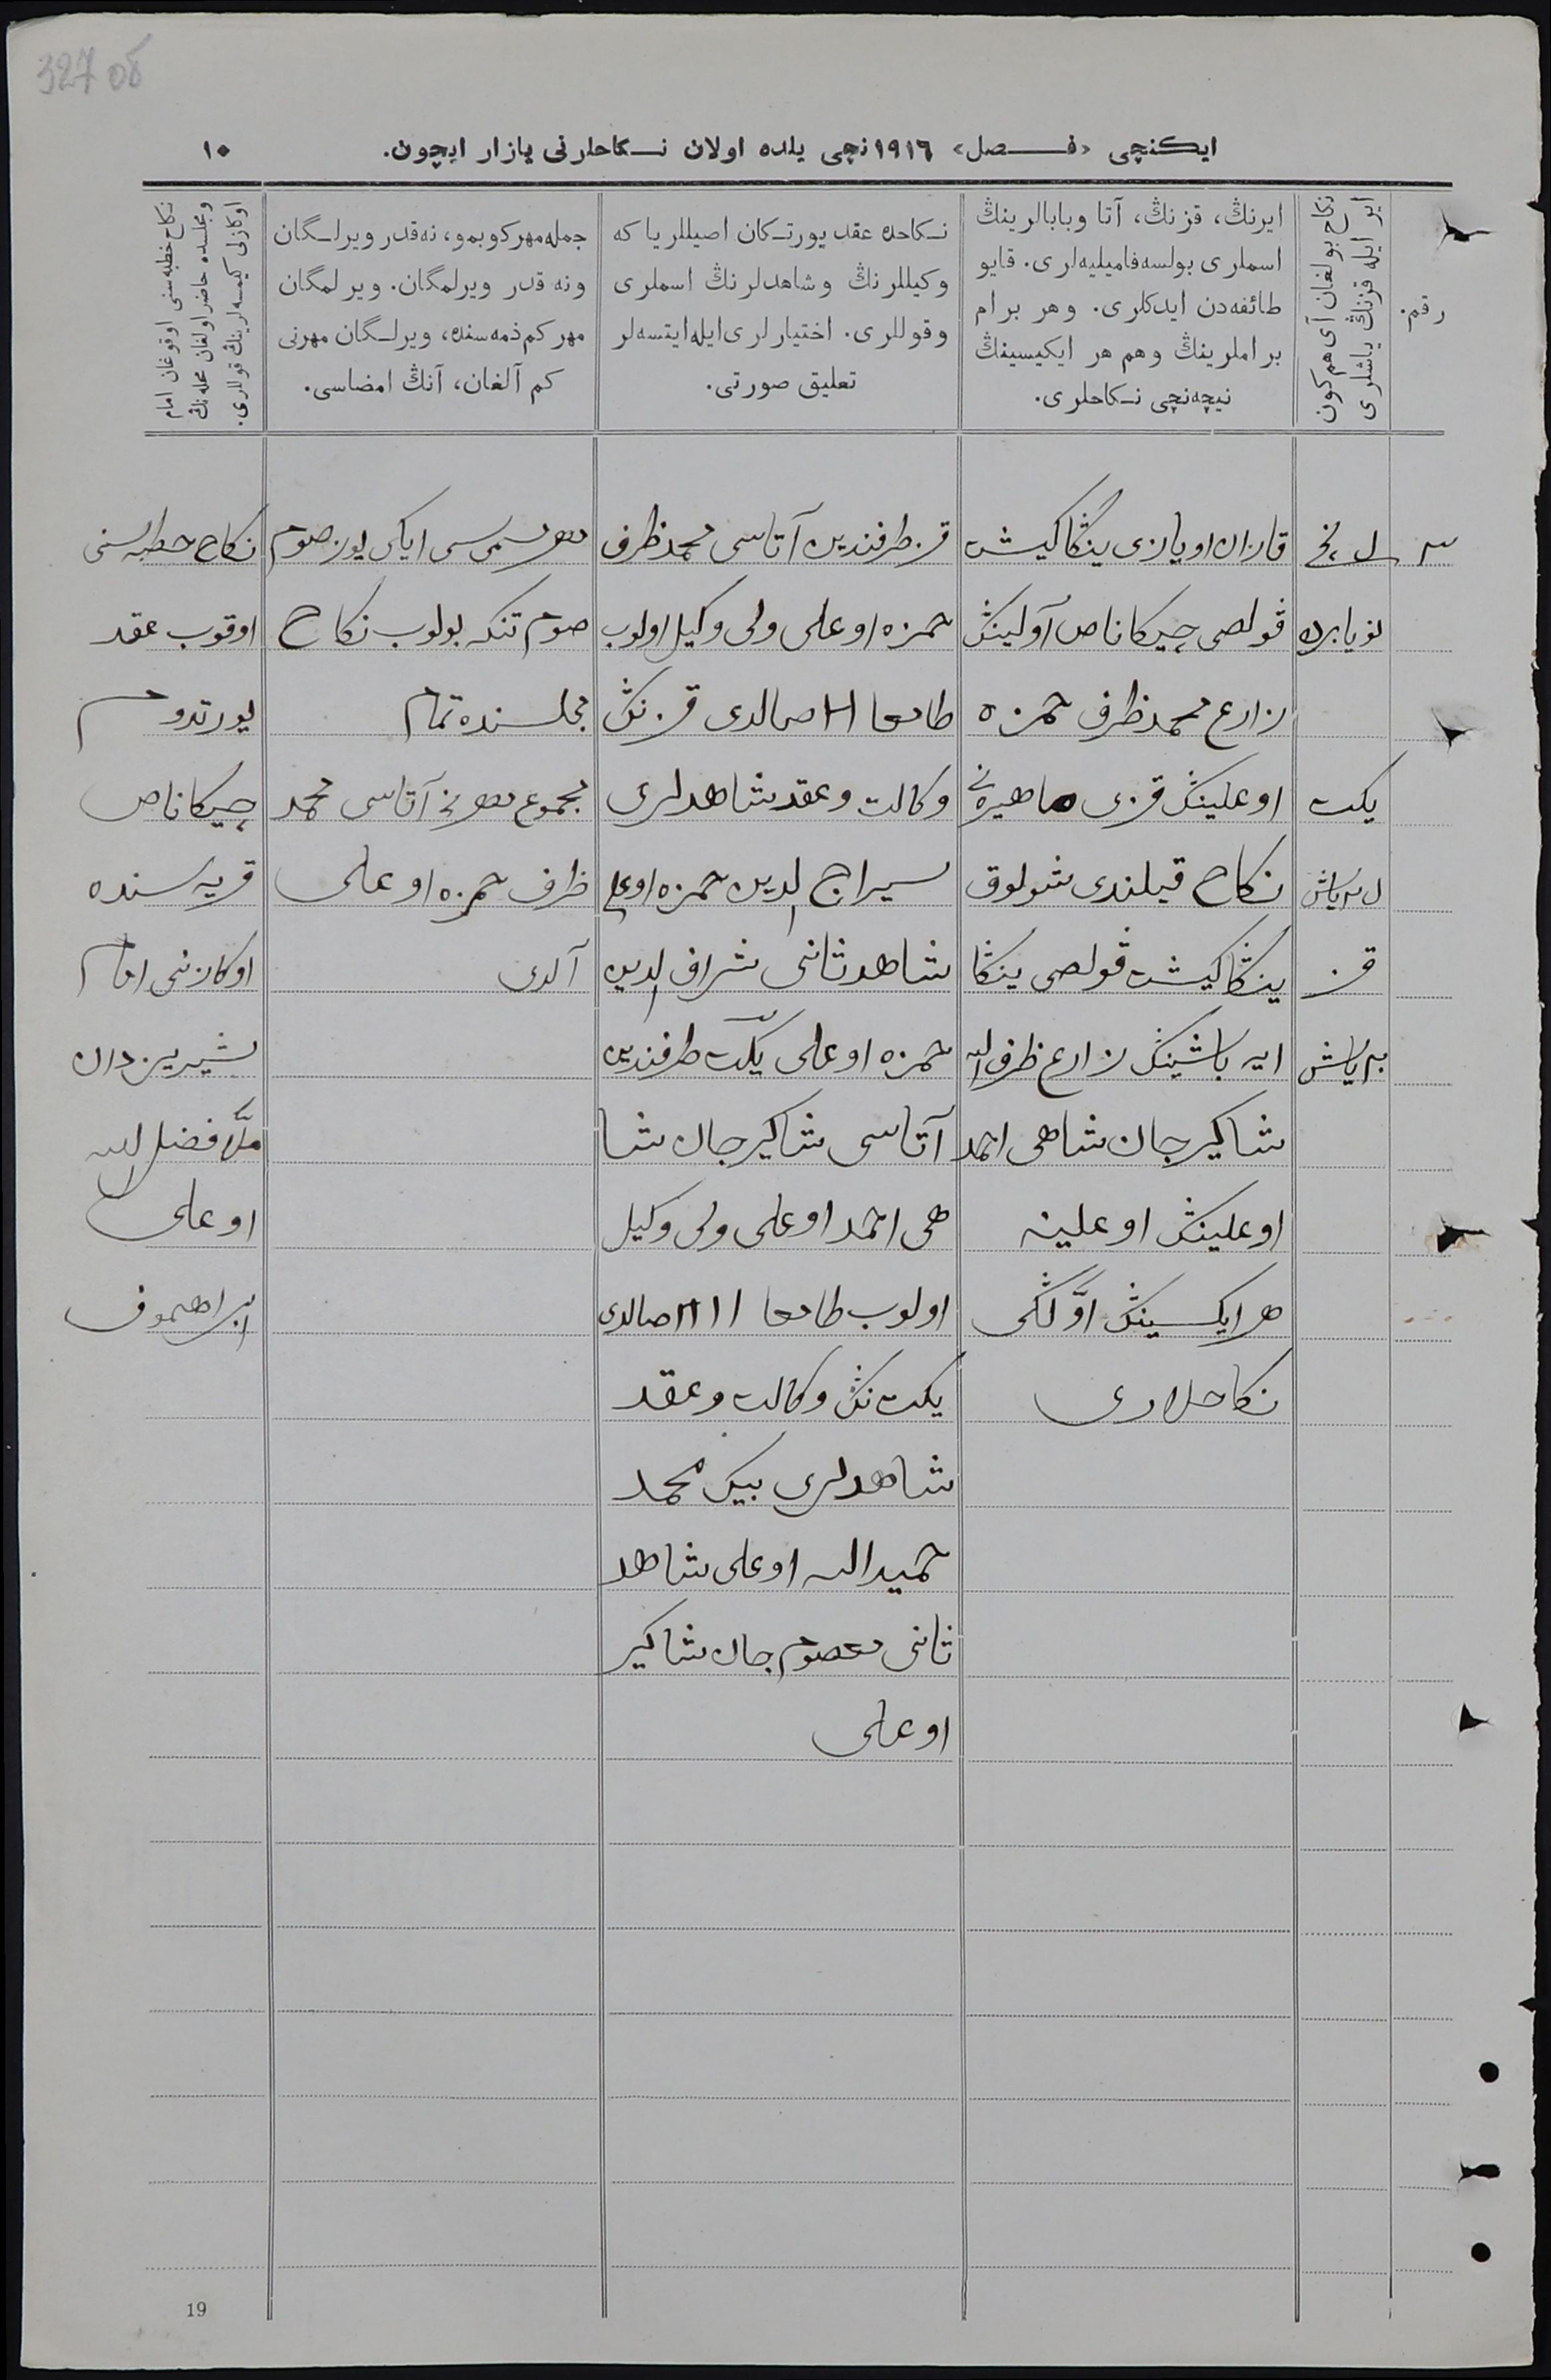 327 об
ايكنچی «فـــصل» ١٩١٦نچی يلده اولان نـكاحلرنی يازار ايچون.
١٠
رقم.
نكاح بولغان آی هم كون
اير ايله قزنڭ ياشلری
ايرنڭ، قزنڭ، آتا وبابالرينڭ
اسملری بولسه فاميليه‌لری. قايو
طائفه‌دن ايدكلری. وهر برام
براملرينڭ وهم هر ايكيسينڭ
نيچه‌نچی نـكاحلری.
نـكاحده عقد يورتـكان اصيللريا كه
وكيللرنڭ وشاهدلرنڭ اسملری
وقوللری. اختيارلری ايله ايتسه‌لر
تعليق صورتی.
جمله مهر كوبمو، نه قدر ويرلـگان
ونه قدر ويرلمگان. ويرلمگان
مهر كم ذمه سنده، ويرلـگان مهرنی
كم آلغان، آنڭ امضاسی.
نكاح خطبه سنی اوقوغان امام
ومجلسده حاضر اولغان محله نڭ
اوكازلی كيمسه لرينڭ قوللری.
نويابرده
يكت
ياش
قز
ياش
قازان اويازی ينڭا كيشت
ڤولصی چيكاناص آولينڭ
زارع محمد ظرف حمزه
اوعلينڭ قزی ماهيره‌نی
نكاح قيلندی شولوق
ينڭا كيشت ڤولصی ينڭا
ايه باشينڭ زارع ظرف الله
شاكيرجان شاهی احمد
اوعلينڭ اوعلينه
هر ايكسينڭ اوّلگی
نكاحلاری
قز طرفندين آتاسی محمد ظرف
حمزه اوعلی ولی وكيل اولوب
طامعا صالدی قزنڭ
وكالت وعقد شاهدلری
سيراج الدين حمزه اوعلی
شاهد ثانی شراف الدين
حمزه اوعلی يكت طرفندين
آتاسی شاكيرجان شا
هی احمد اوعلی ولی وكيل
اولوب طامعا صالدی
يكت نڭ وكالت وعقد
شاهدلری بيك محمد
حميدالله اوعلی شاهد
ثانی معصوم جان شاكير
اوعلی
مهر سمی ايكی يوز صوم
صوم تنكه بولوب نكاح
مجلسنده تمام
مجموع مهرنی آتاسی محمد
ظرف حمزه اوعلی
آلدی
نكاح خطبه سنی
اوقوب عقد
يورتدوم
چيكاناص
قريه سنده
اوكازنی امام
بشيريزدان
ملّا فضل الله
اوعلی
ابراهموف
19